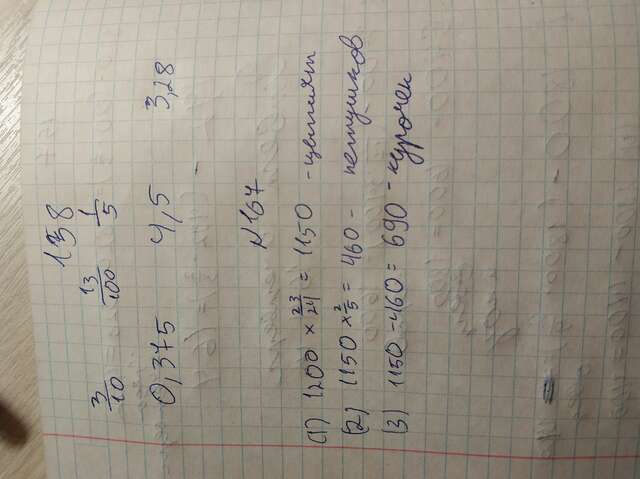 138
3/10 13/100 1/5
0,375 4,5 3,28
№167
(1) 1200 × 23/24 = 1150 - цыплят
(2) 1150 × 2/5 = 460 - петушков
(3) 1150 - 460 = 690 - курочек